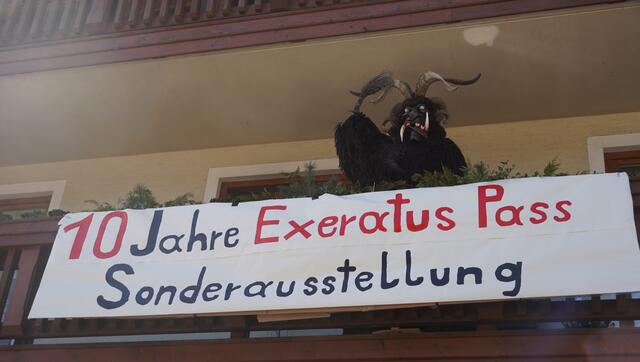 10 Jahre Exeratus Pass
Sonderausstellung